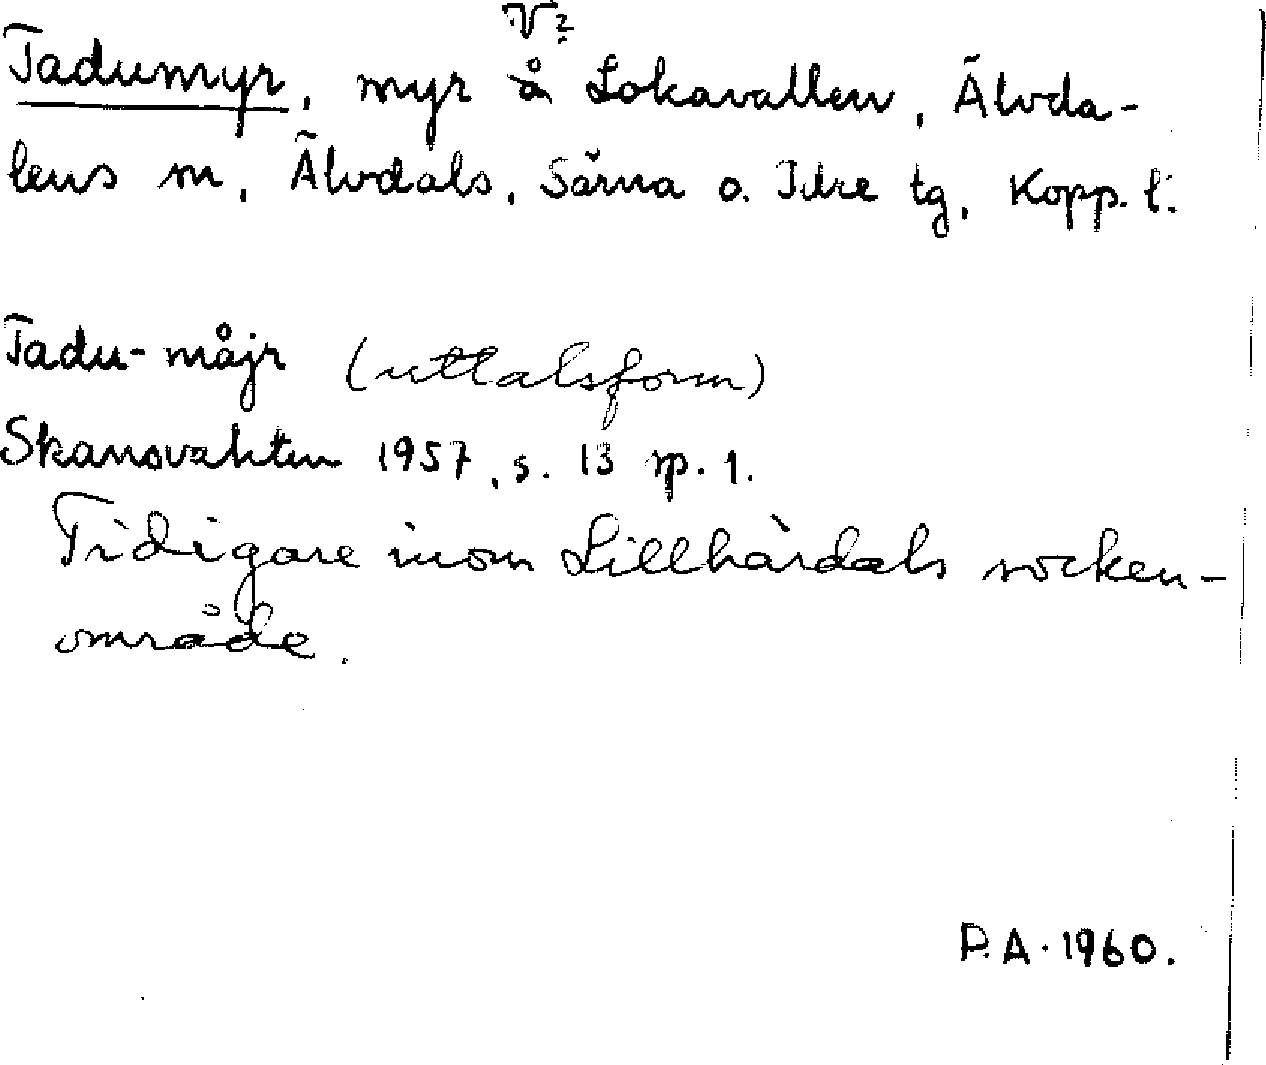 V?
Tadumyr, myr å Lokavallen, Älvda-
lens sn, Älvdals, Särna o. Idre tg, Kopp. l.
Tadu-måjr (uttalsform)
Skansvakten 1957, s. 13 sp. 1.
Tidigare inom Lillhärdals socken-
område.
P.A. 1960.